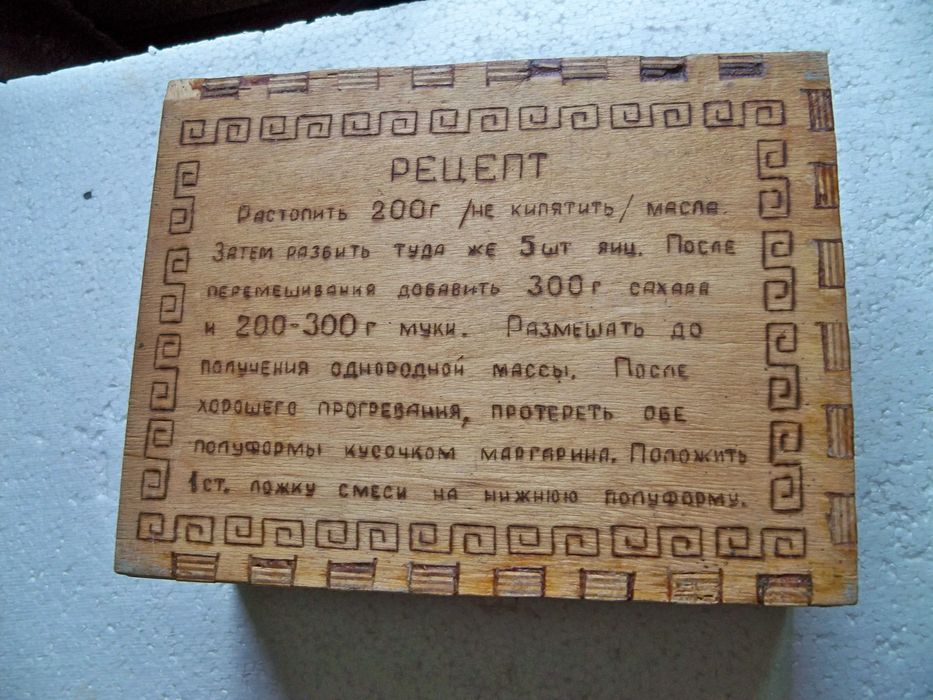 РЕЦЕПТ
Растопить 200г /не кипятить/ масла.
Затем разбить туда же 5шт яиц. После
перемешивания добавить 300г сахара
и 200-300г муки. Размешать до
получения однородной массы. После
хорошего прогревания, протереть обе
полуформы кусочком маргарина. Положить
1ст. ложку смеси на нижнюю полуформу.